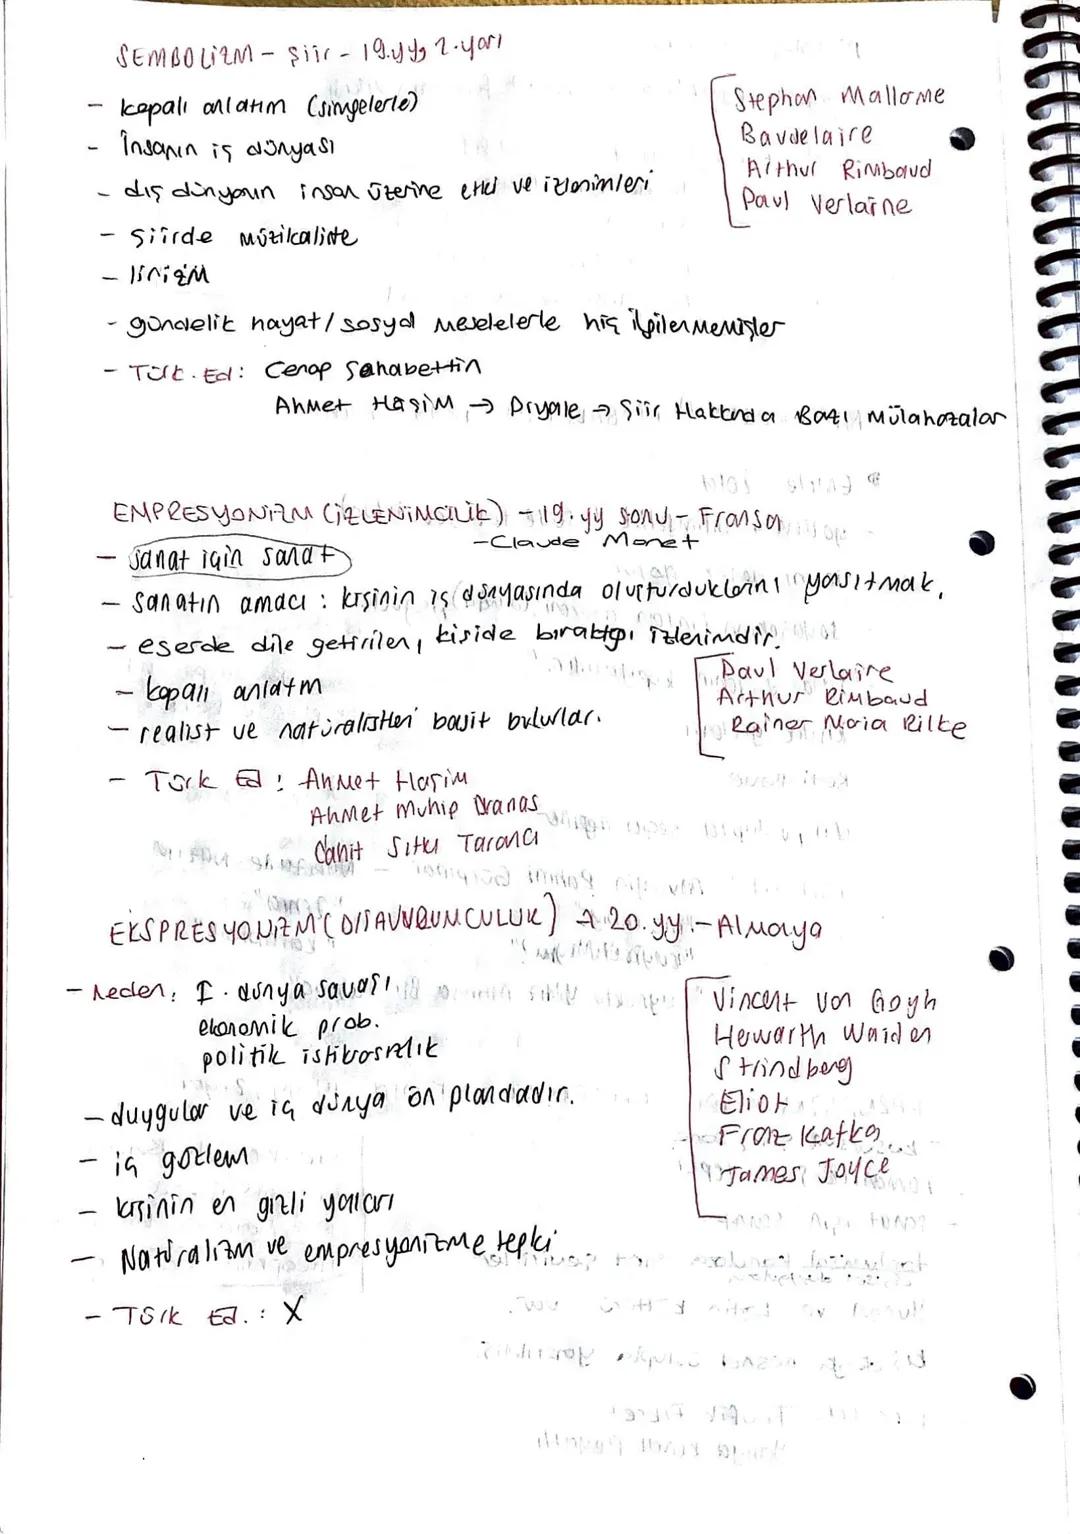 SEMBOLİZM - Şiir - 19.yy, 2.yarı
- kapalı anlatım (simgelerle)
- İnsanın iç dünyası
- dış dünyanın insan üzerine etki ve izlenimleri
- şiirde müzikalite
- lirizm
- gündelik hayat/sosyal meselelerle hiç ilgilenmemişler
- Türk. Ed: Cenap Şahabettin
Ahmet Haşim → Piyale → Şiir Hakkında Bazı Mülahazalar
Stephan Mallarme
Baudelaire
Arthur Rimbaud
Paul Verlaine
EMPRESYONİZM (İZLENİMCİLİK) - 19. yy sonu - Fransa
- Claude Monet
- sanat için sanat
- sanatın amacı : kişinin iç dünyasında oluşturduklarını yansıtmak.
- eserde dile getirilen, kişide bıraktığı izlenimdir.
- kapalı anlatım
- realist ve natüralistleri basit bulurlar.
Paul Verlaine
Arthur Rimbaud
Rainer Maria Rilke
- Türk Ed : Ahmet Haşim
Ahmet Muhip Dranas
Cahit Sıtkı Tarancı
EKSPRESYONİZM (DIŞAVURUMCULUK) → 20. yy. - Almanya
- Neden: I. dünya savaşı
ekonomik prob.
politik istikrarsızlık
- duygular ve iç dünya ön plandadır.
- iç gözlem
- kişinin en gizli yanları
- Natüralizm ve empresyonizme tepki
- Türk Ed. : X
Vincent Von Gogh
Hewarth Walden
Strindberg
Eliot
Franz Kafka
James Joyce